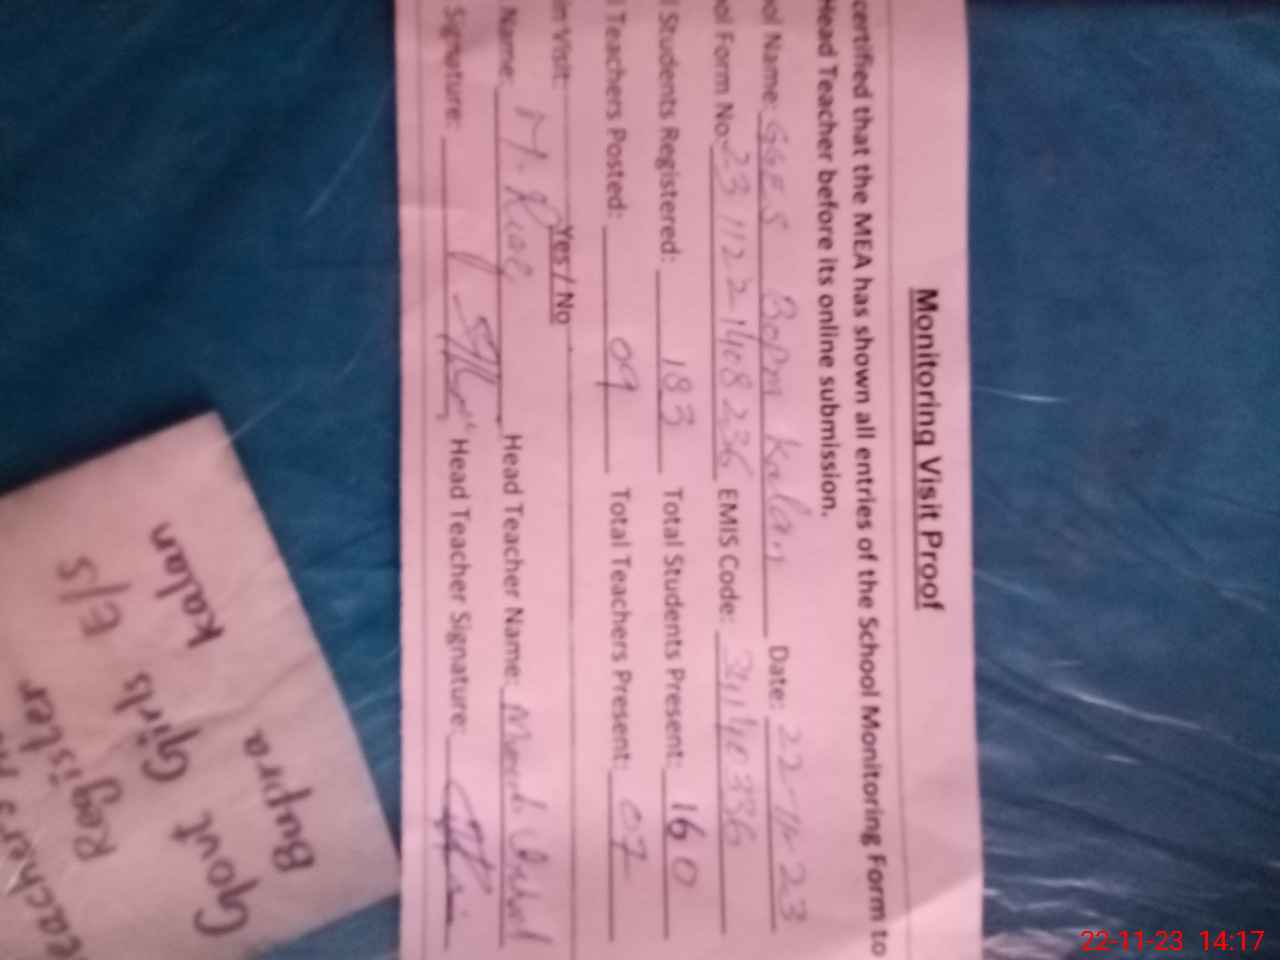 Monitoring Visit Proof
certified that the MEA has shown all entries of the School Monitoring Form to
Head Teacher before its online submission.
ol Name: GGES Bopra Kalan Date: 22-11-23
ol Form No. 23112214 EMIS Code:
l Students Registered: 183 Total Students Present: 160
l Teachers Posted: 09 Total Teachers Present: 07
in Visit: Yes / No
Name: M. Head Teacher Name:
Signature: Head Teacher Signature:
Govt Girls E/S
Bupra kalan
eachers
Register
22-11-23 14:17